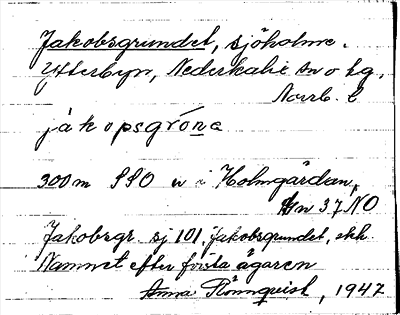 Jakobsgrundet, sjöholme.
Ytterbyn, Nederkalix sn o hg,
Norrb. l
jákopsgrona
300 m SSO n i Holmgärdan,
37 NO
Jakobsgr. sj 101, Jakobsgrundet, ekk
Namnet efter första ägaren
Anna Rönnquist, 1947